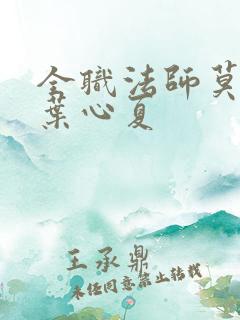 全職法師莫
葉心夏
王承鼎
未经同意禁止转载